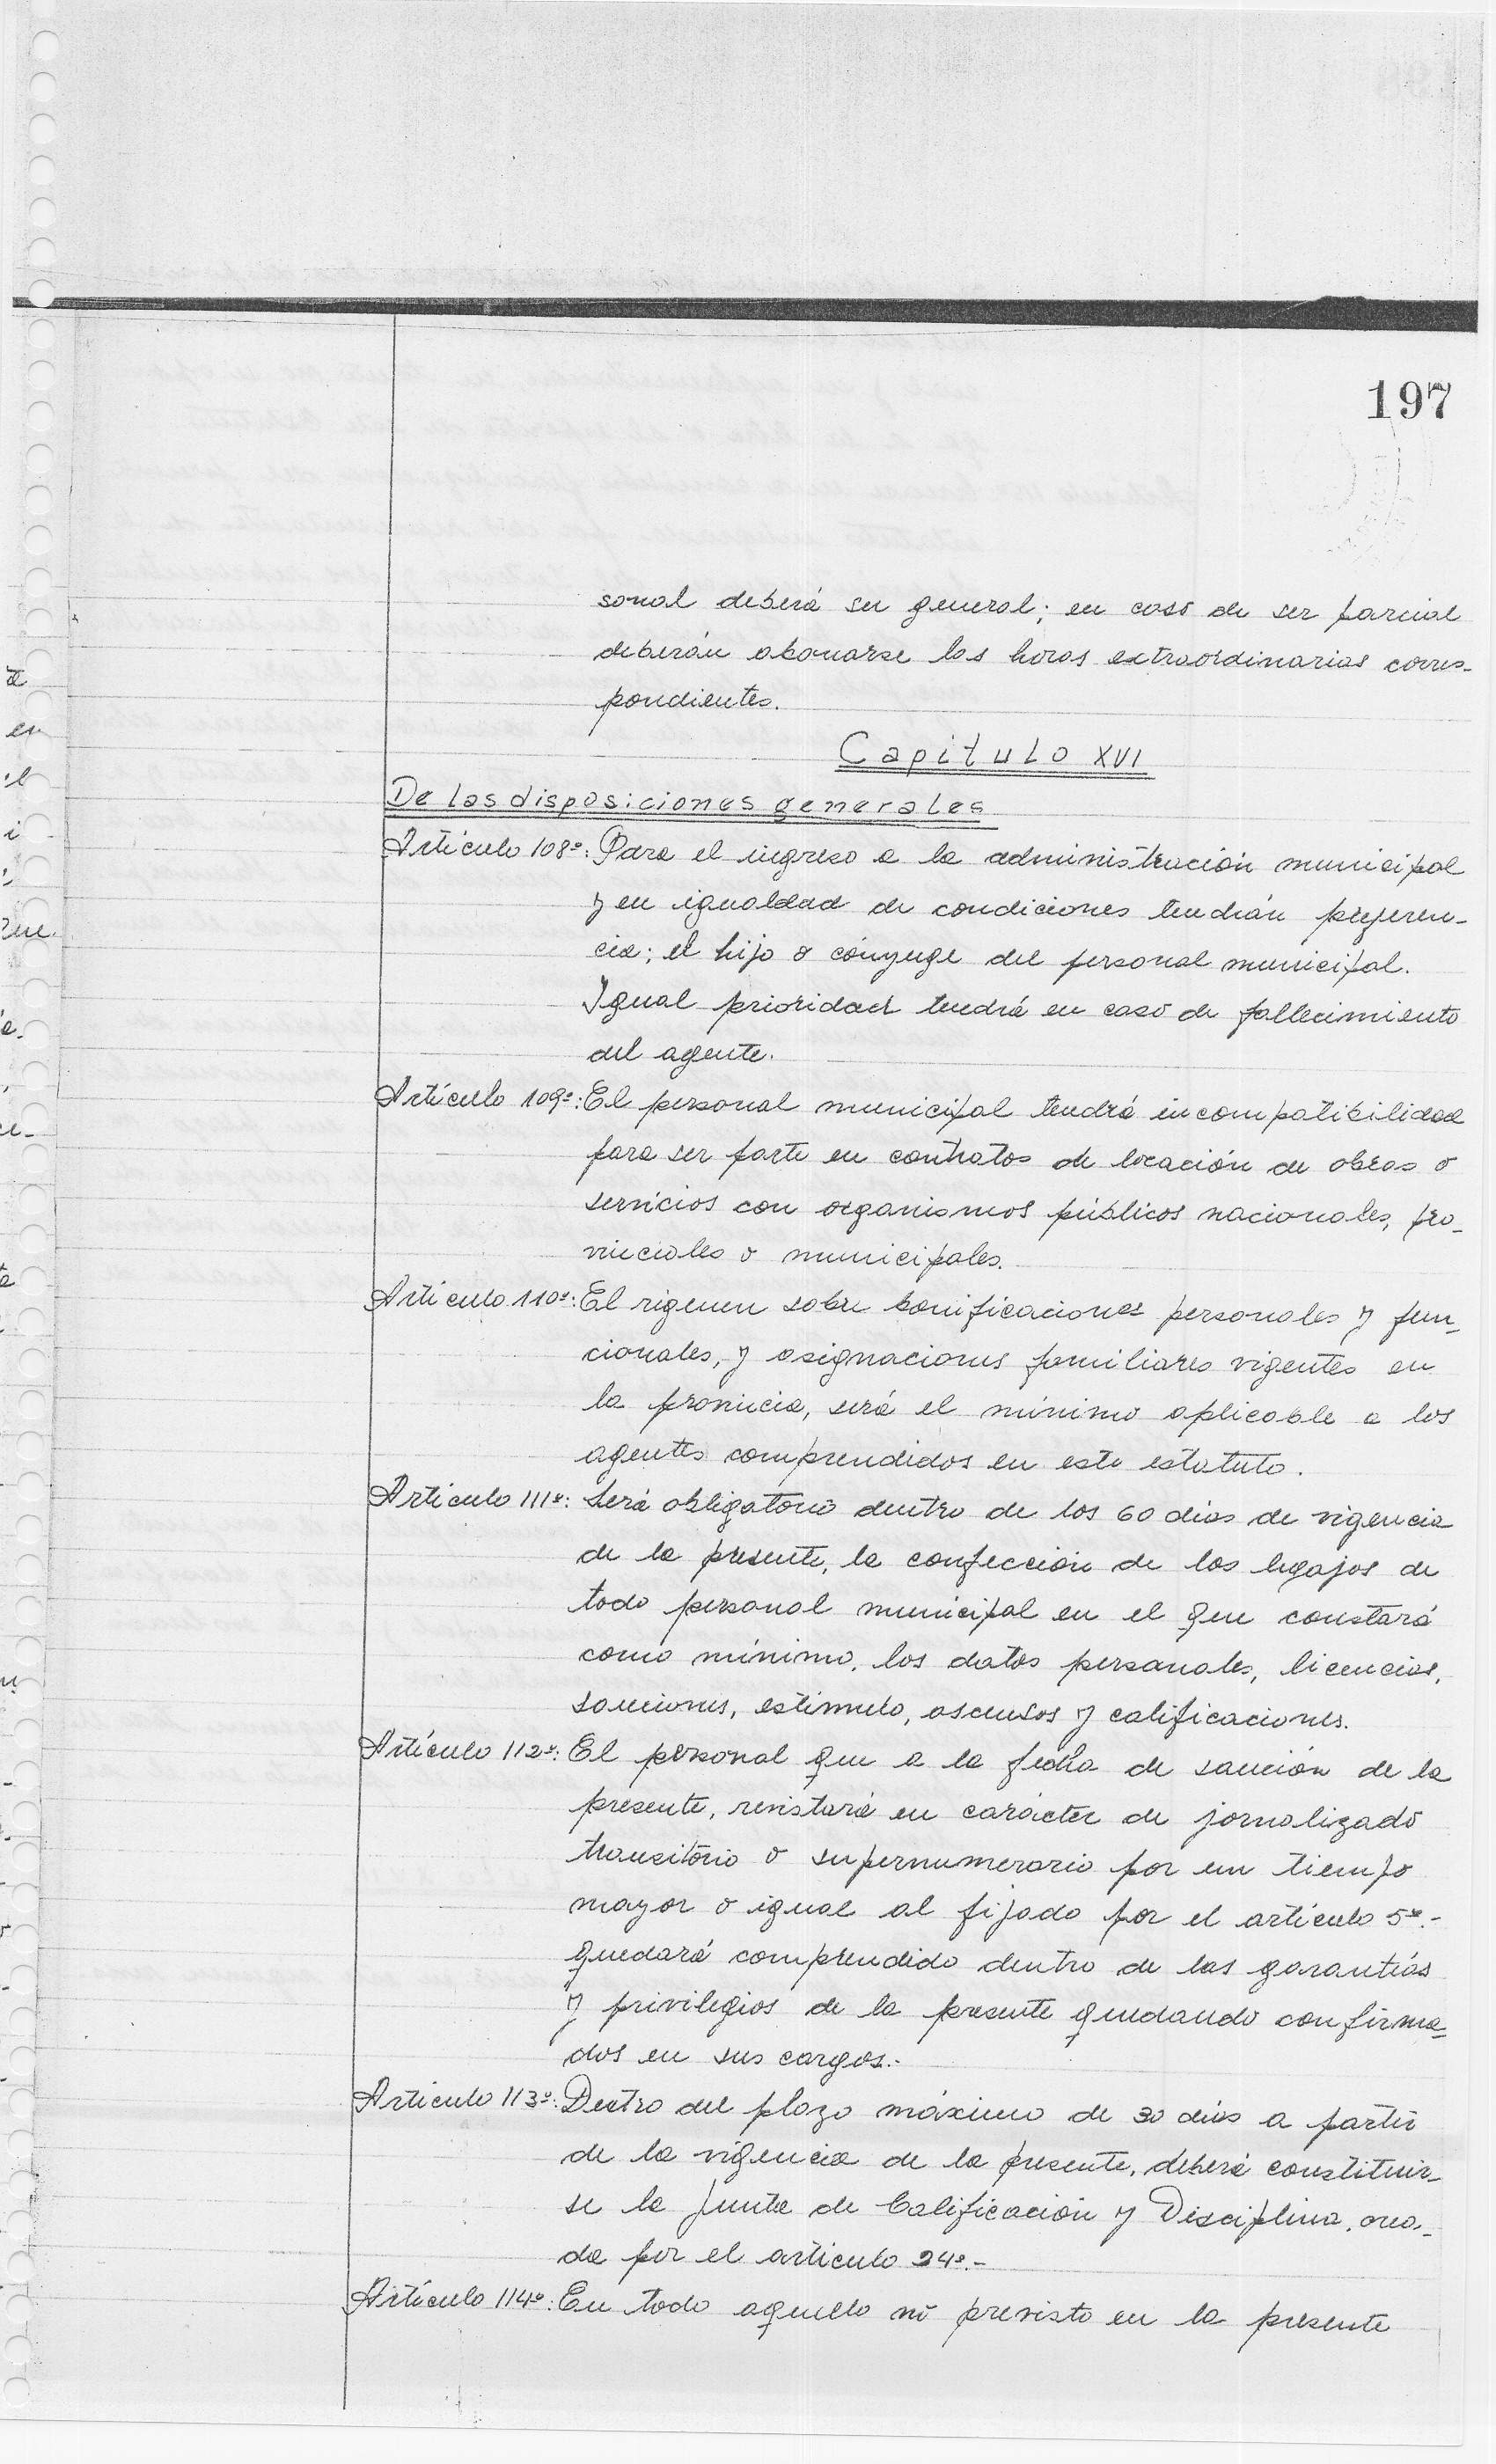 197
sonal deberá ser general; en caso de ser parcial
deberán abonarse las horas extraordinarias corres-
pondientes.
Capitulo XVI
De las disposiciones generales
Artículo 108º: Para el ingreso a la administración municipal
y en igualdad de condiciones tendrán preferen-
cia; el hijo o cónyuge del personal municipal.
Igual prioridad tendrá en caso de fallecimiento
del agente.
Artículo 109º: El personal municipal tendrá incompatibilidad
para ser parte en contratos de locación de obras o
servicios con organismos públicos nacionales, pro-
vinciales o municipales.
Artículo 110º: El rigemen sobre bonificaciones personales y fun-
cionales, y asignaciones familiares vigentes en
la provincia, será el mínimo aplicable a los
agentes comprendidos en este estatuto.
Artículo 111º: Será obligatorio dentro de los 60 días de vigencia
de la presente, la confección de los legajos de
todo personal municipal en el que constará
como mínimo, los datos personales, licencias,
sanciones, estimulo, ascensos y calificaciones.
Artículo 112º: El personal que a la fecha de sanción de la
presente, revistará en carácter de jornalizado
transitorio o supernumerario por un tiempo
mayor o igual al fijado por el artículo 5º.-
quedará comprendido dentro de las garantías
y privilegios de la presente quedando confirma-
dos en sus cargos.-
Artículo 113º: Dentro del plazo máximo de 30 días a partir
de la vigencia de la presente, deberá constituir-
se la Junta de Calificación y Disciplina, crea-
da por el artículo 24º.-
Artículo 114º: En todo aquello no previsto en la presente